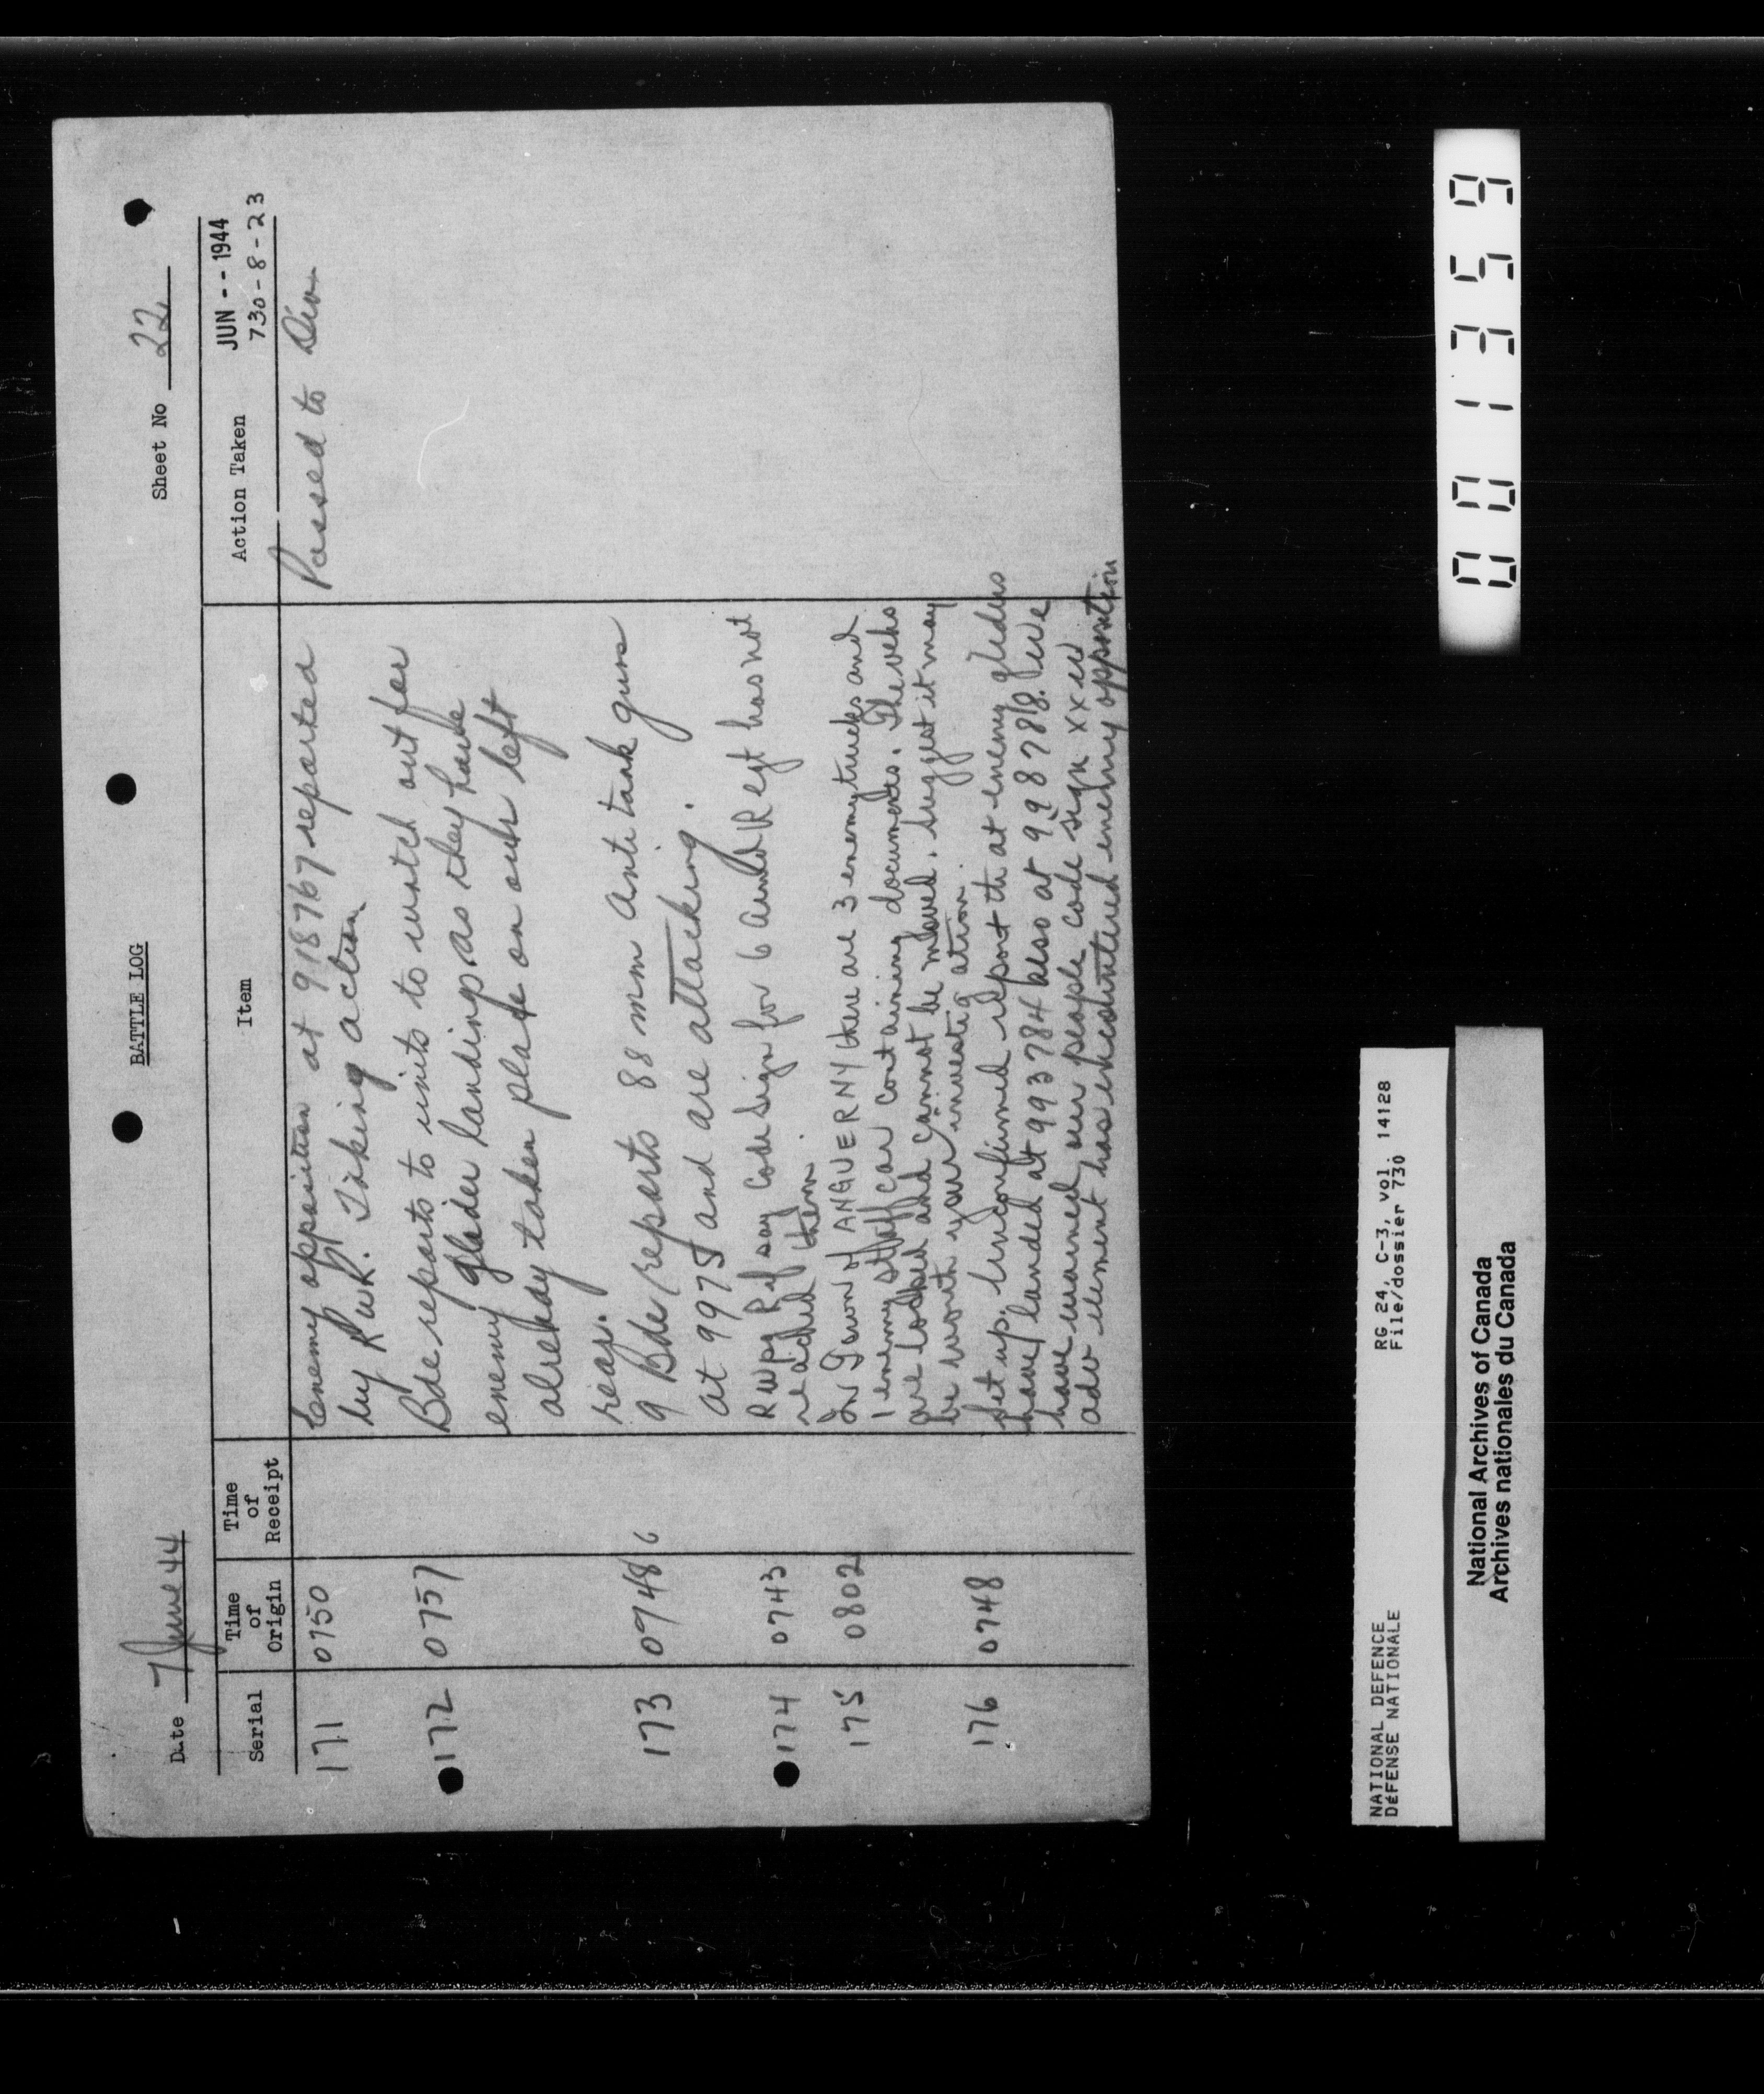 BATTLE LOG
Date 7 June 44
Sheet No 22
Serial
Time of Origin
Time of Receipt
Item
Action Taken
JUN -- 1944
730-8-23
171 0750 Enemy opposition at 918767 reported Passed to Div
by RWR. Taking action
172 0757 Bde reports to units to watch out for
enemy glider landings as they have
already taken place on our left
rear.
173 0748 9 Bde reports 88 mm anti tank guns
at 9975 and are attacking.
174 0743 RWpg Rif say Code Sign for 6 Armd Regt has not
reached them.
175 0802 In Town of ANGUERNY there are 3 enemy trucks and
1 enemy staff car containing documents. The vehs
are locked and cannot be moved. Suggest it may
be worth your investigation.
176 0748 Set up. Unconfirmed report that enemy gliders
have landed at 993784 also at 998781. We
have warned our people code sign xx
adv element has encountered enemy opposition
001359
NATIONAL DEFENCE
DÉFENSE NATIONALE
RG 24, C-3, vol. 14128
File/dossier 730
National Archives of Canada
Archives nationales du Canada